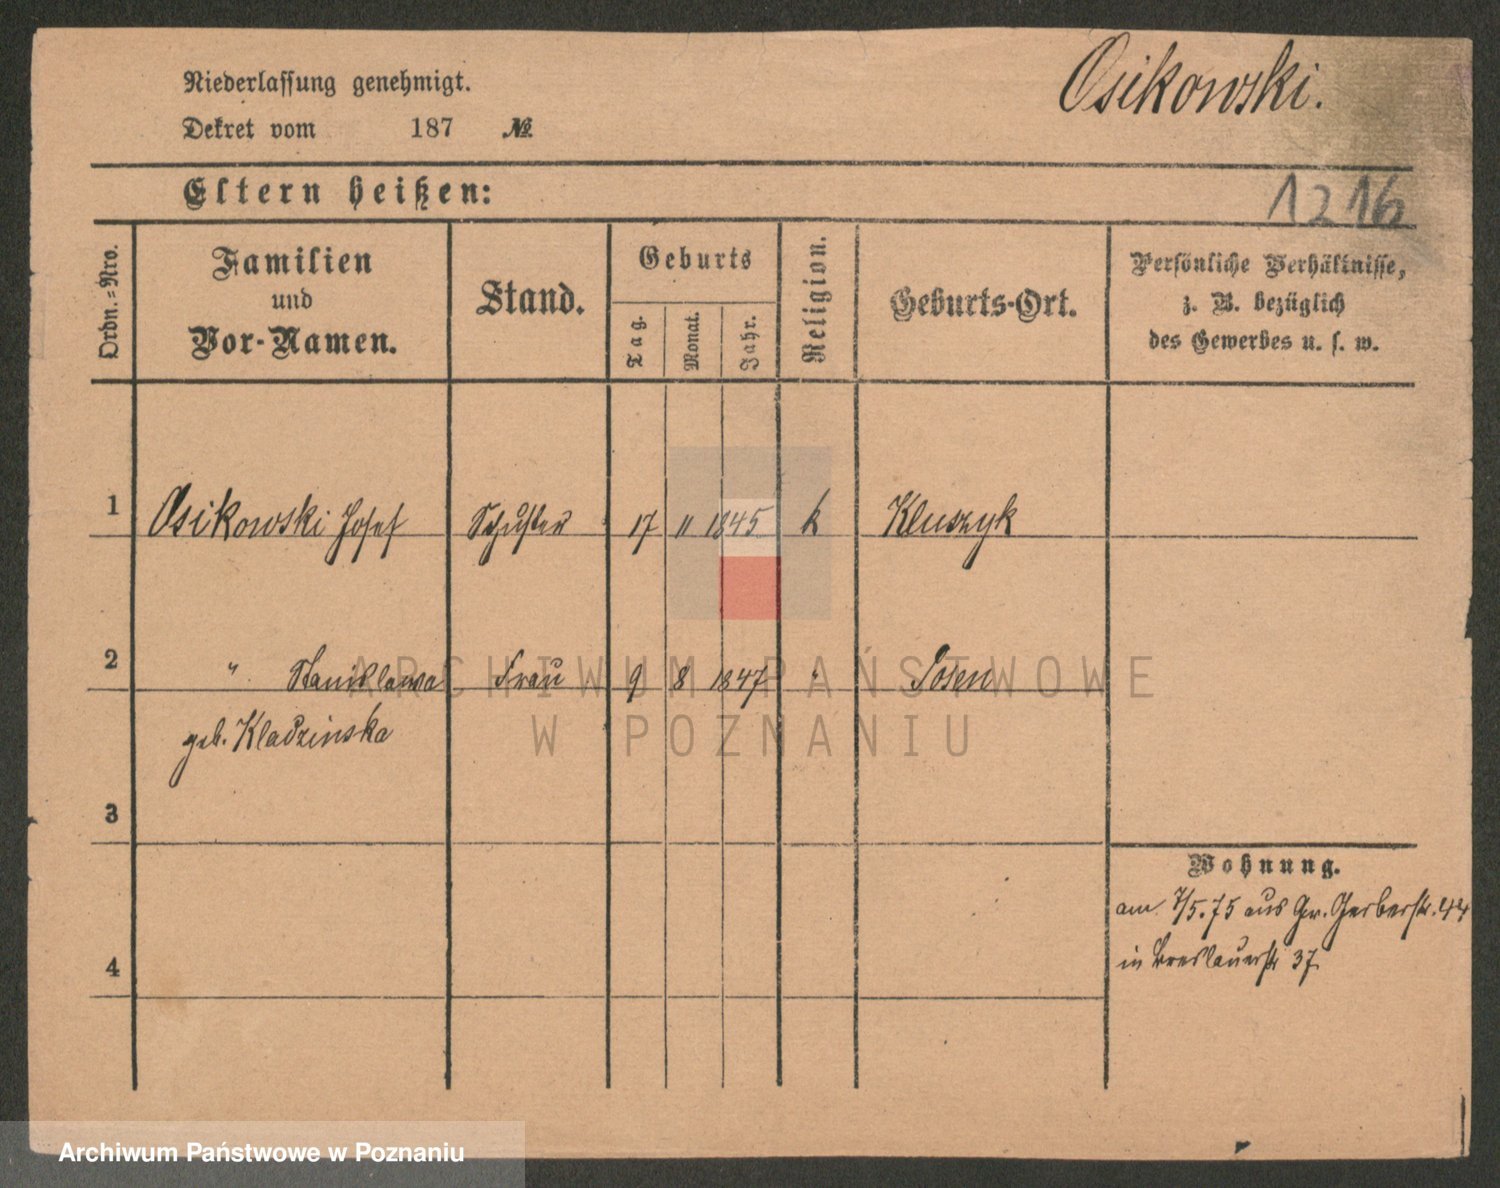 Niederlassung genehmigt.
Dekret vom 187 №
Osikowski.
Eltern heißen:
1216
Ordn.=Nro.
Familien
und
Vor-Namen.
Stand.
Geburts
Tag.
Monat.
Jahr.
Religion.
Geburts-Ort.
Persönliche Verhältnisse,
z. B. bezüglich
des Gewerbes u. s. w.
1 Osikowski Josef Schuster 17 11 1845 k Kluszyk
2 " Stanislawa Frau 9 8 1847 " Posen
geb. Kladzinska
3
Wohnung.
am 7/5.75 aus Gr. Gerberstr. 44
in Breslauerstr 37
4
ARCHIWUM PAŃSTWOWE
W POZNANIU
Archiwum Państwowe w Poznaniu